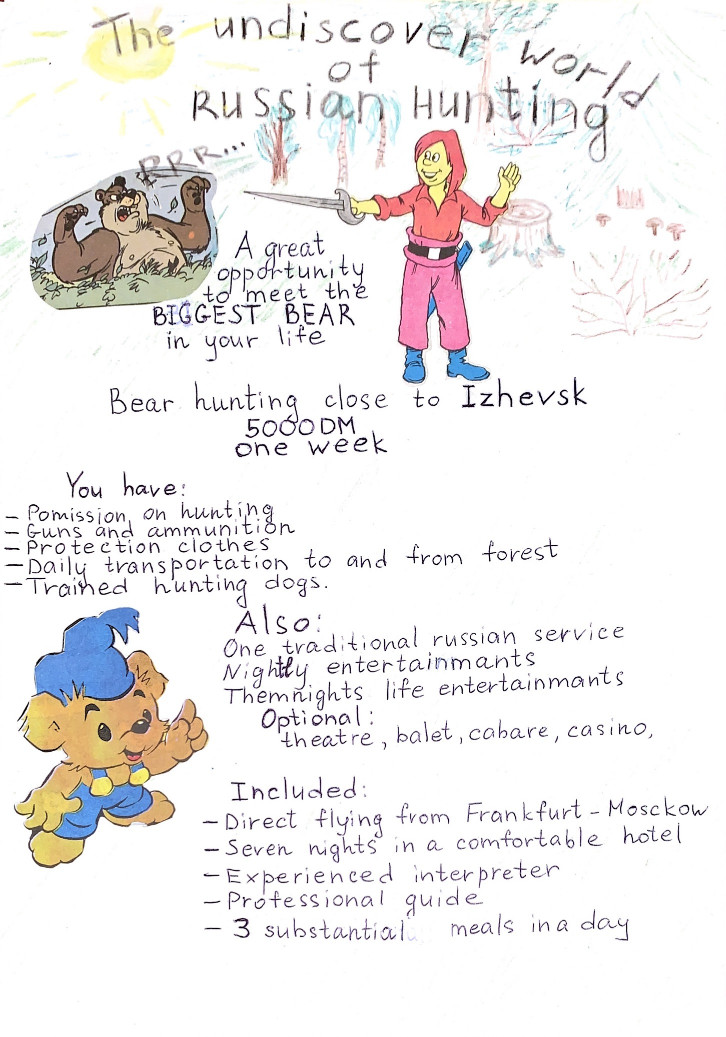 The undiscover world
of
Russian Hunting
RRR...
A great
opportunity
to meet the
BIGGEST BEAR
in your life
Bear hunting close to Izhevsk
5000DM
one week
You have:
- Pomission on hunting
- Guns and ammunition
- Protection clothes
- Daily transportation to and from forest
- Trained hunting dogs.
Also:
One traditional russian service
Nightly entertainmants
Themnights life entertainmants
Optional:
theatre, balet, cabare, casino,
Included:
- Direct flying from Frankfurt - Mosckow
- Seven nights in a comfortable hotel
- Experienced interpreter
- Professional guide
- 3 substantial meals in a day